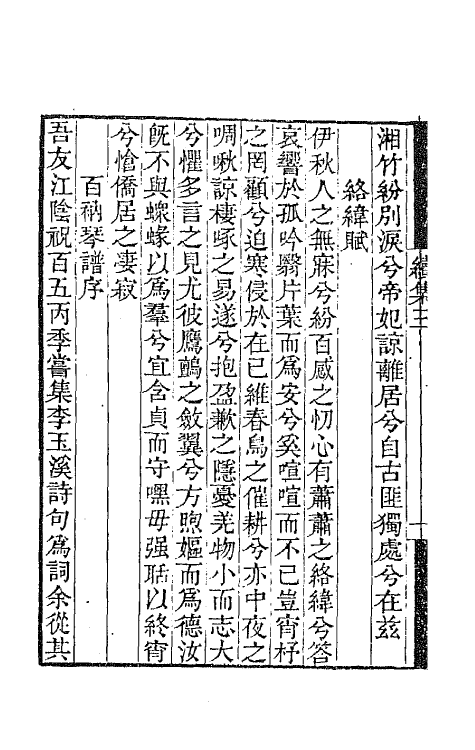 湘竹紛別淚兮帝妃諒離居兮自古匪獨處兮在茲
絡緯賦
伊秋人之無寐兮紛百感之忉心有蕭蕭之絡緯兮答
哀響於孤吟翳片葉而爲安兮奚喧喧而不已豈宵杼
之罔顧兮迫寒侵於在已維春鳥之催耕兮亦中夜之
啁啾諒棲啄之易遂兮抱盈歉之隱憂羌物小而志大
兮懼多言之見尤彼鷹鸇之斂翼兮方煦嫗而爲德汝
旣不與螓蝝以爲羣兮宜含貞而守嘿毋强聒以終宵
兮愴僑居之凄寂
百衲琴譜序
吾友江陰祝百五丙季嘗集李玉溪詩句爲詞余從其
續集三
十